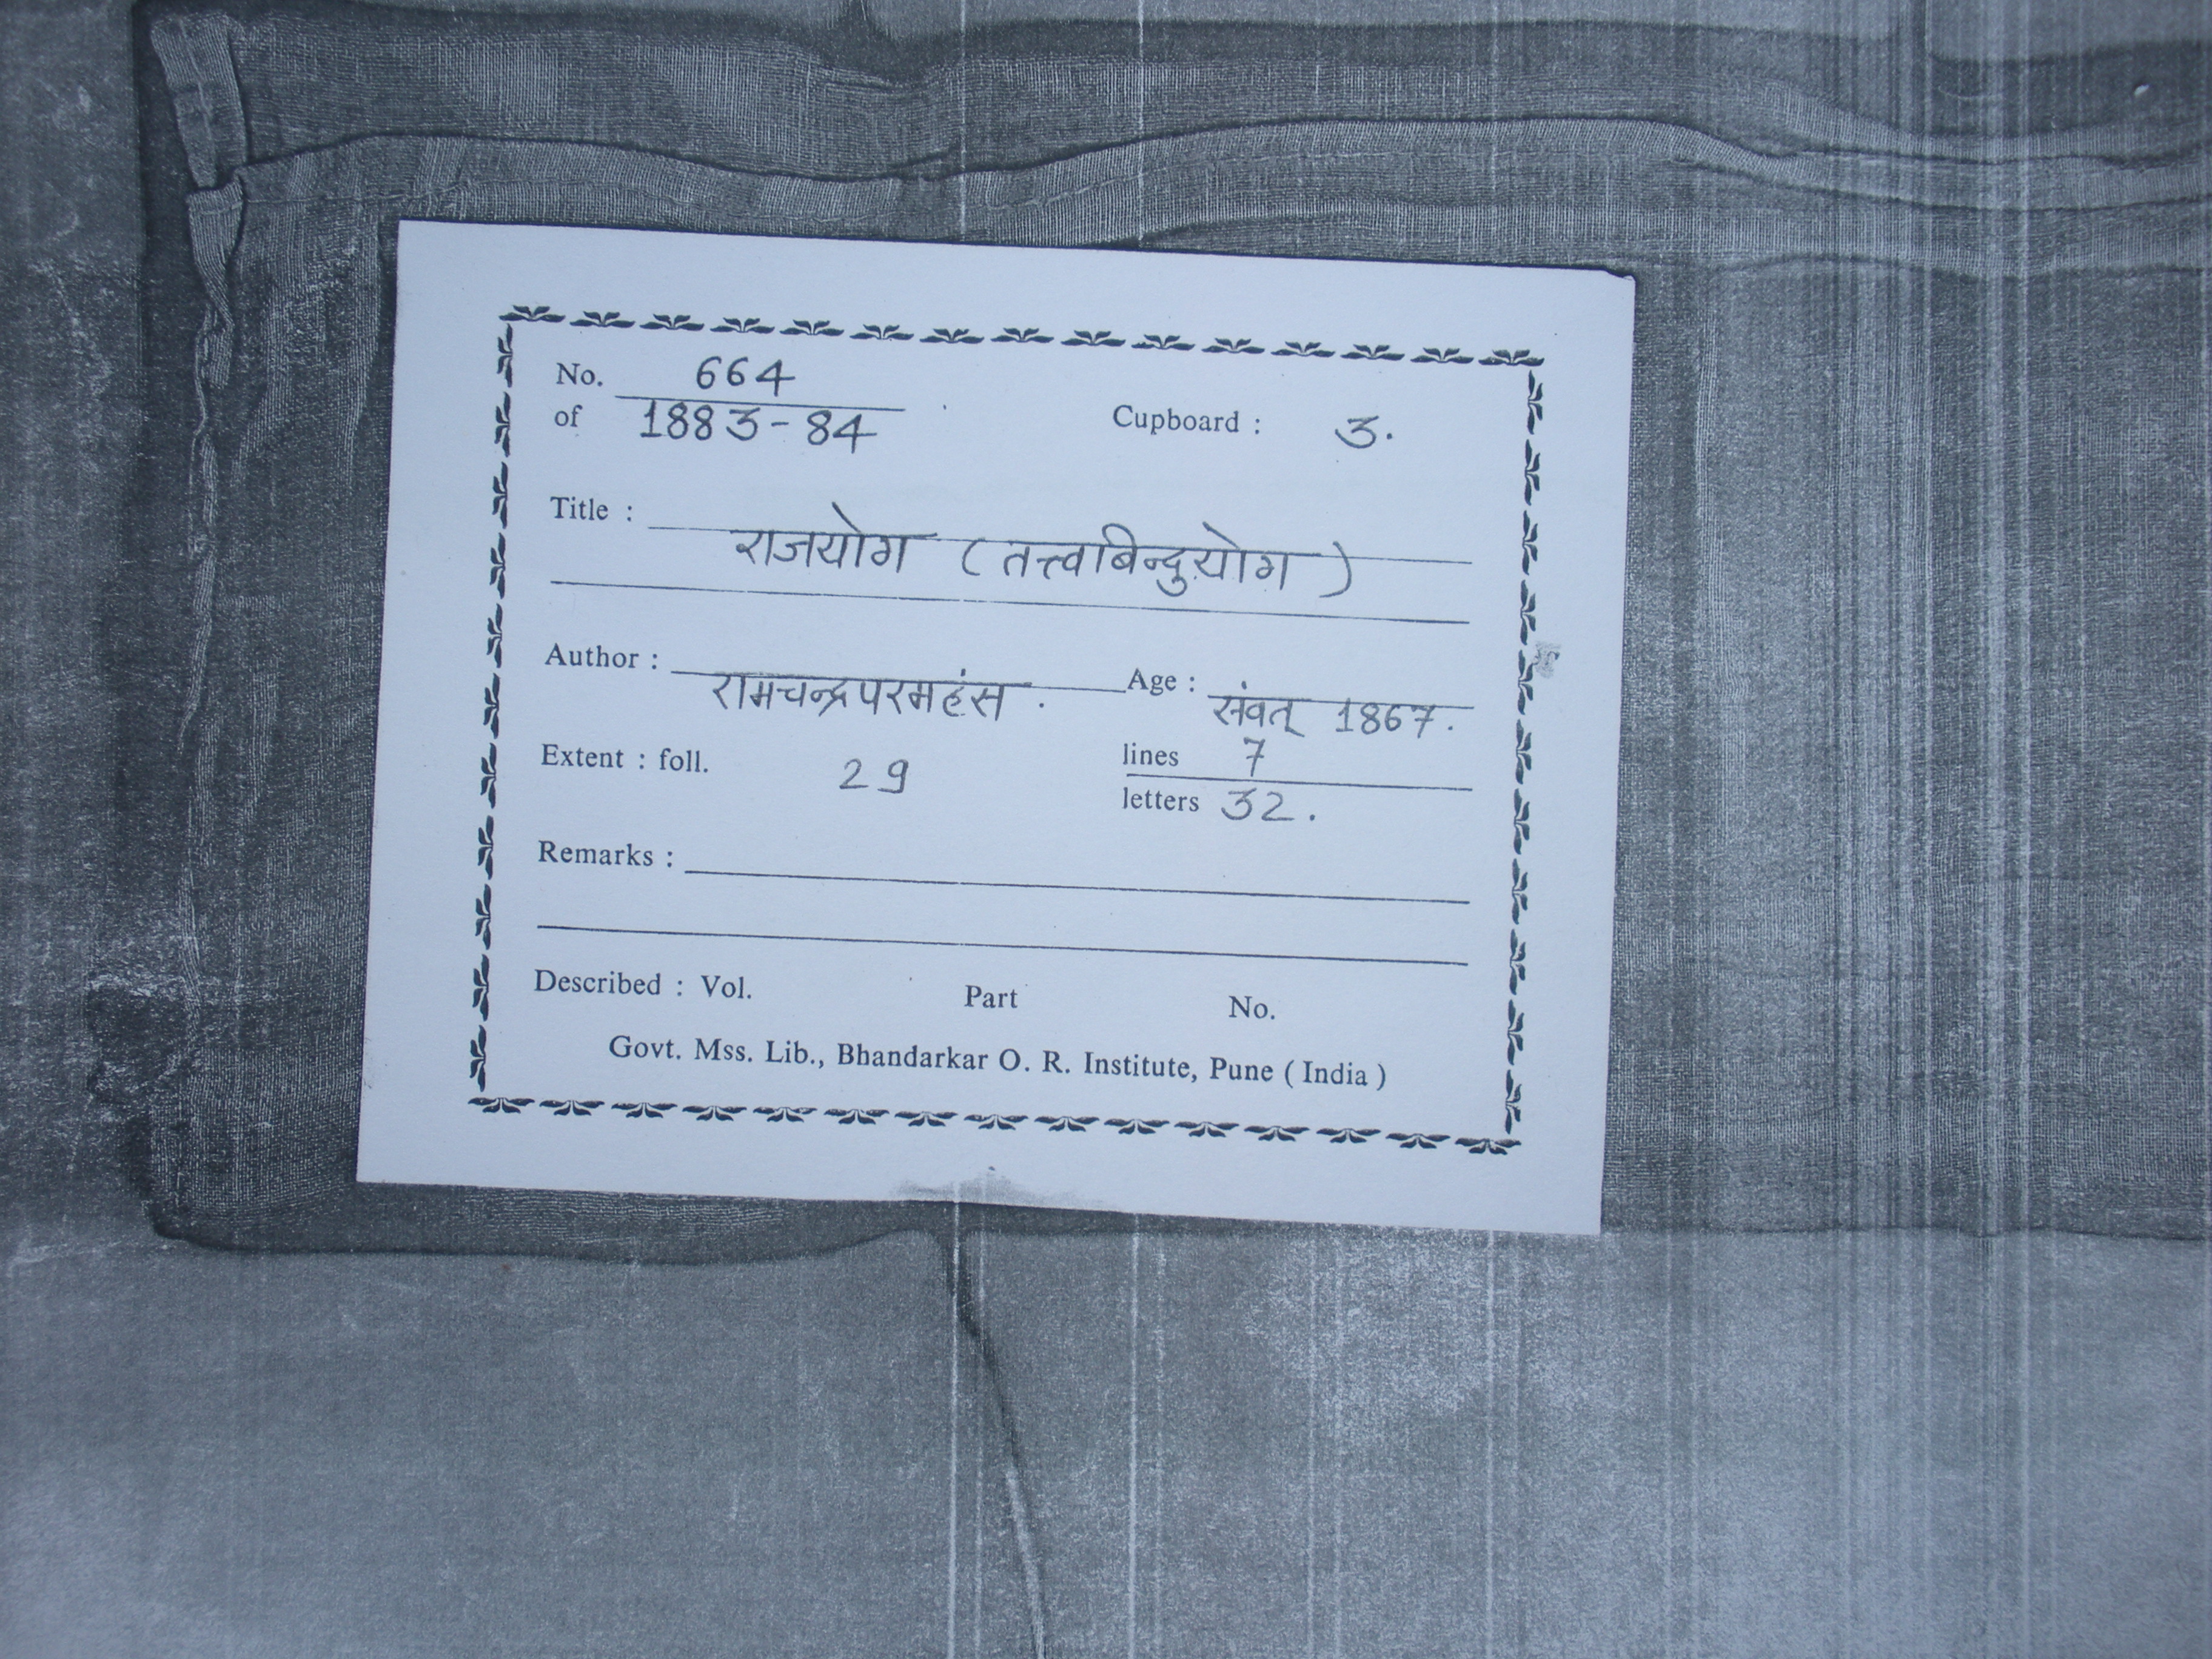 No. 664
of 1883-84 Cupboard : 3.
Title : राजयोग (तत्त्वबिन्दुयोग)
Author : रामचन्द्रपरमहंस . Age : संवत् 1867.
Extent : foll. 29 lines 7
letters 32.
Remarks :
Described : Vol. Part No.
Govt. Mss. Lib., Bhandarkar O. R. Institute, Pune ( India )